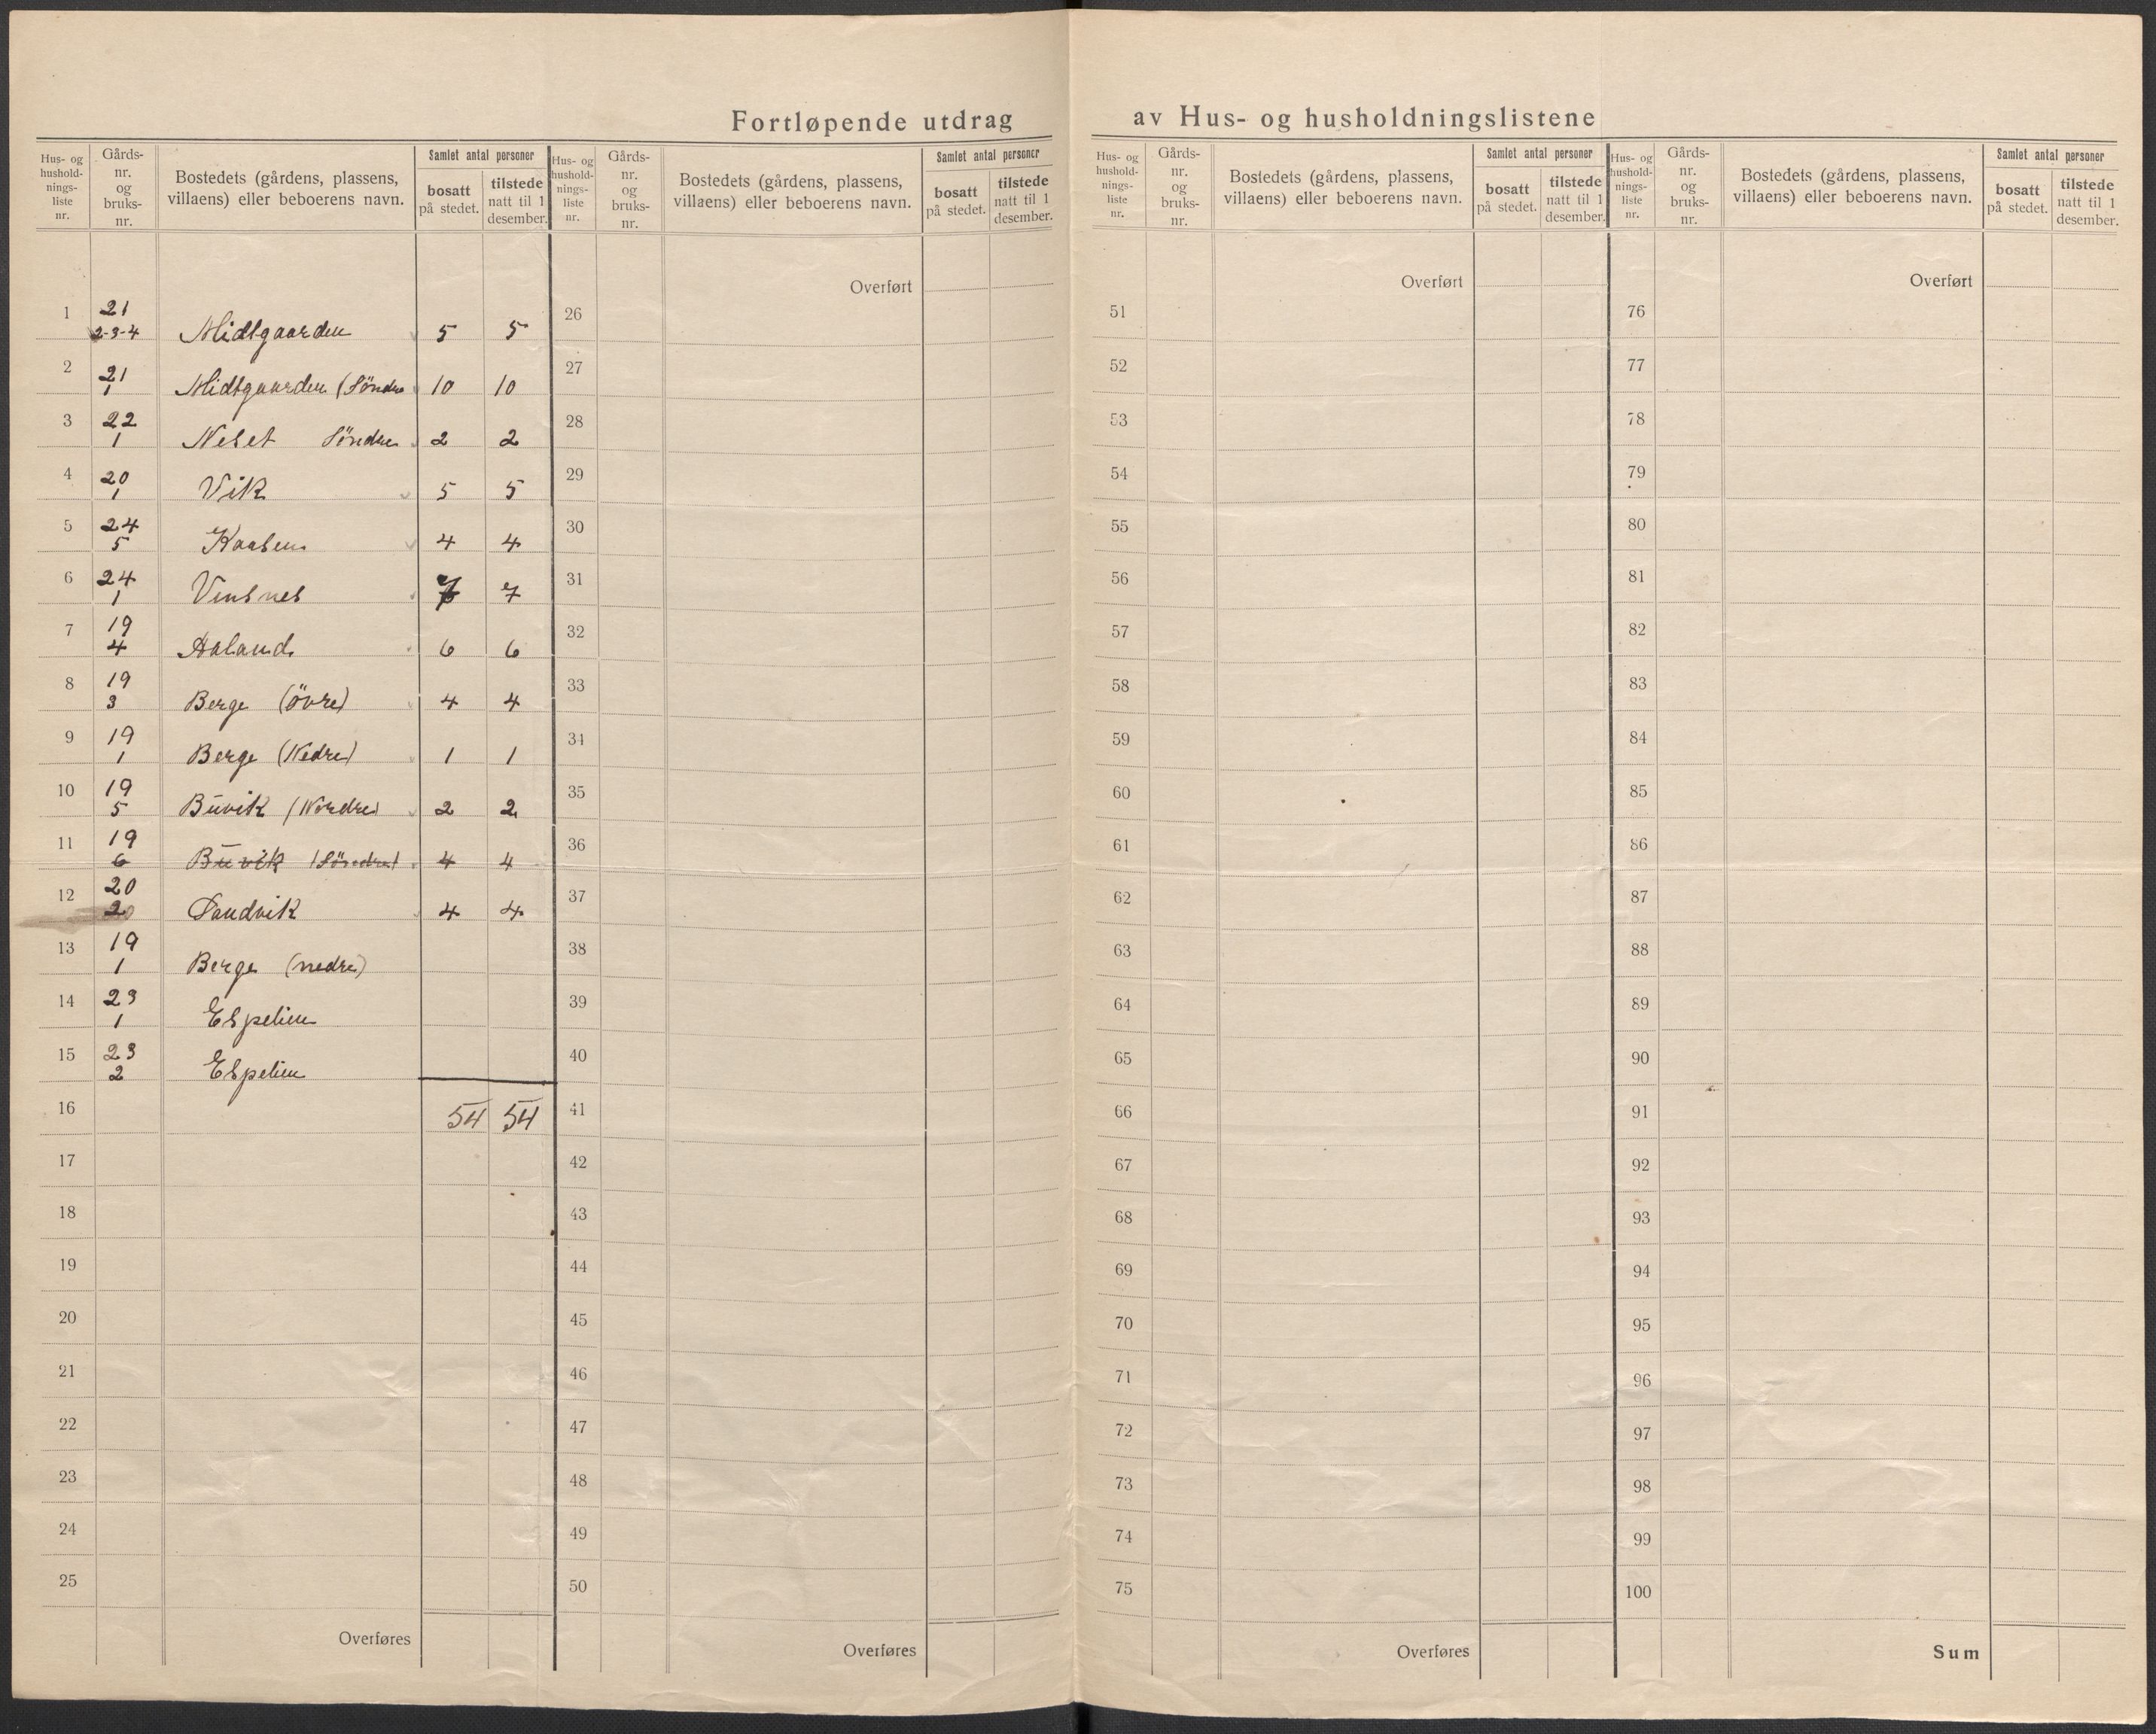 Fortløpende utdrag av Hus- og husholdningslistene
Hus- og hushold-nings-liste nr. | Gårds-nr. og bruks-nr. | Bostedets (gårdens, plassens, villaens) eller beboerens navn. | Samlet antal personer | bosatt på stedet. | tilstede natt til 1 desember.
1 21 2-3-4 Midtgaarden 5 5
2 21 1 Midtgaarden (Söndre 10 10
3 22 1 Neset Söndre 2 2
4 20 1 Vik 5 5
5 24 5 Kaasen 4 4
6 24 1 Vinsnes 7 7
7 19 4 Aaland 6 6
8 19 3 Berge (övre) 4 4
9 19 1 Berge (Nedre) 1 1
10 19 5 Buvik (Nordre) 2 2
11 19 6 Buvik (Söndre) 4 4
12 20 2 Sandvik 4 4
13 19 1 Berge (nedre)
14 23 1 Espelien
15 23 2 Espelien
16 54 54
17
18
19
20
21
22
23
24
25
Overføres
Hus- og hushold-nings-liste nr. | Gårds-nr. og bruks-nr. | Bostedets (gårdens, plassens, villaens) eller beboerens navn. | Samlet antal personer | bosatt på stedet. | tilstede natt til 1 desember.
Overført
26
27
28
29
30
31
32
33
34
35
36
37
38
39
40
41
42
43
44
45
46
47
48
49
50
Overføres
Hus- og hushold-nings-liste nr. | Gårds-nr. og bruks-nr. | Bostedets (gårdens, plassens, villaens) eller beboerens navn. | Samlet antal personer | bosatt på stedet. | tilstede natt til 1 desember.
Overført
51
52
53
54
55
56
57
58
59
60
61
62
63
64
65
66
67
68
69
70
71
72
73
74
75
Overføres
Hus- og hushold-nings-liste nr. | Gårds-nr. og bruks-nr. | Bostedets (gårdens, plassens, villaens) eller beboerens navn. | Samlet antal personer | bosatt på stedet. | tilstede natt til 1 desember.
Overført
76
77
78
79
80
81
82
83
84
85
86
87
88
89
90
91
92
93
94
95
96
97
98
99
100
Sum